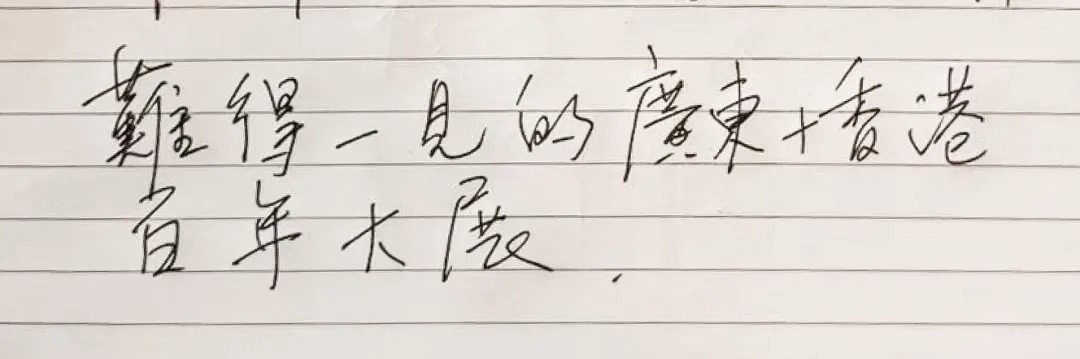 難得一見的廣東+香港
百年大展.